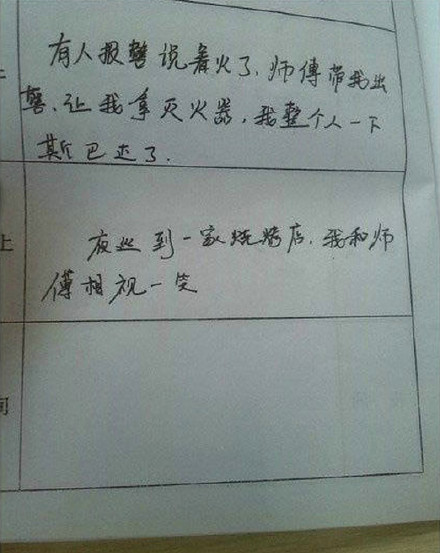 有人报警说着火了、师傅带我出
警、让我拿灭火器,我整个人一下
斯巴达了.
上
夜巡到一家烧烤店,我和师
傅相视一笑
间